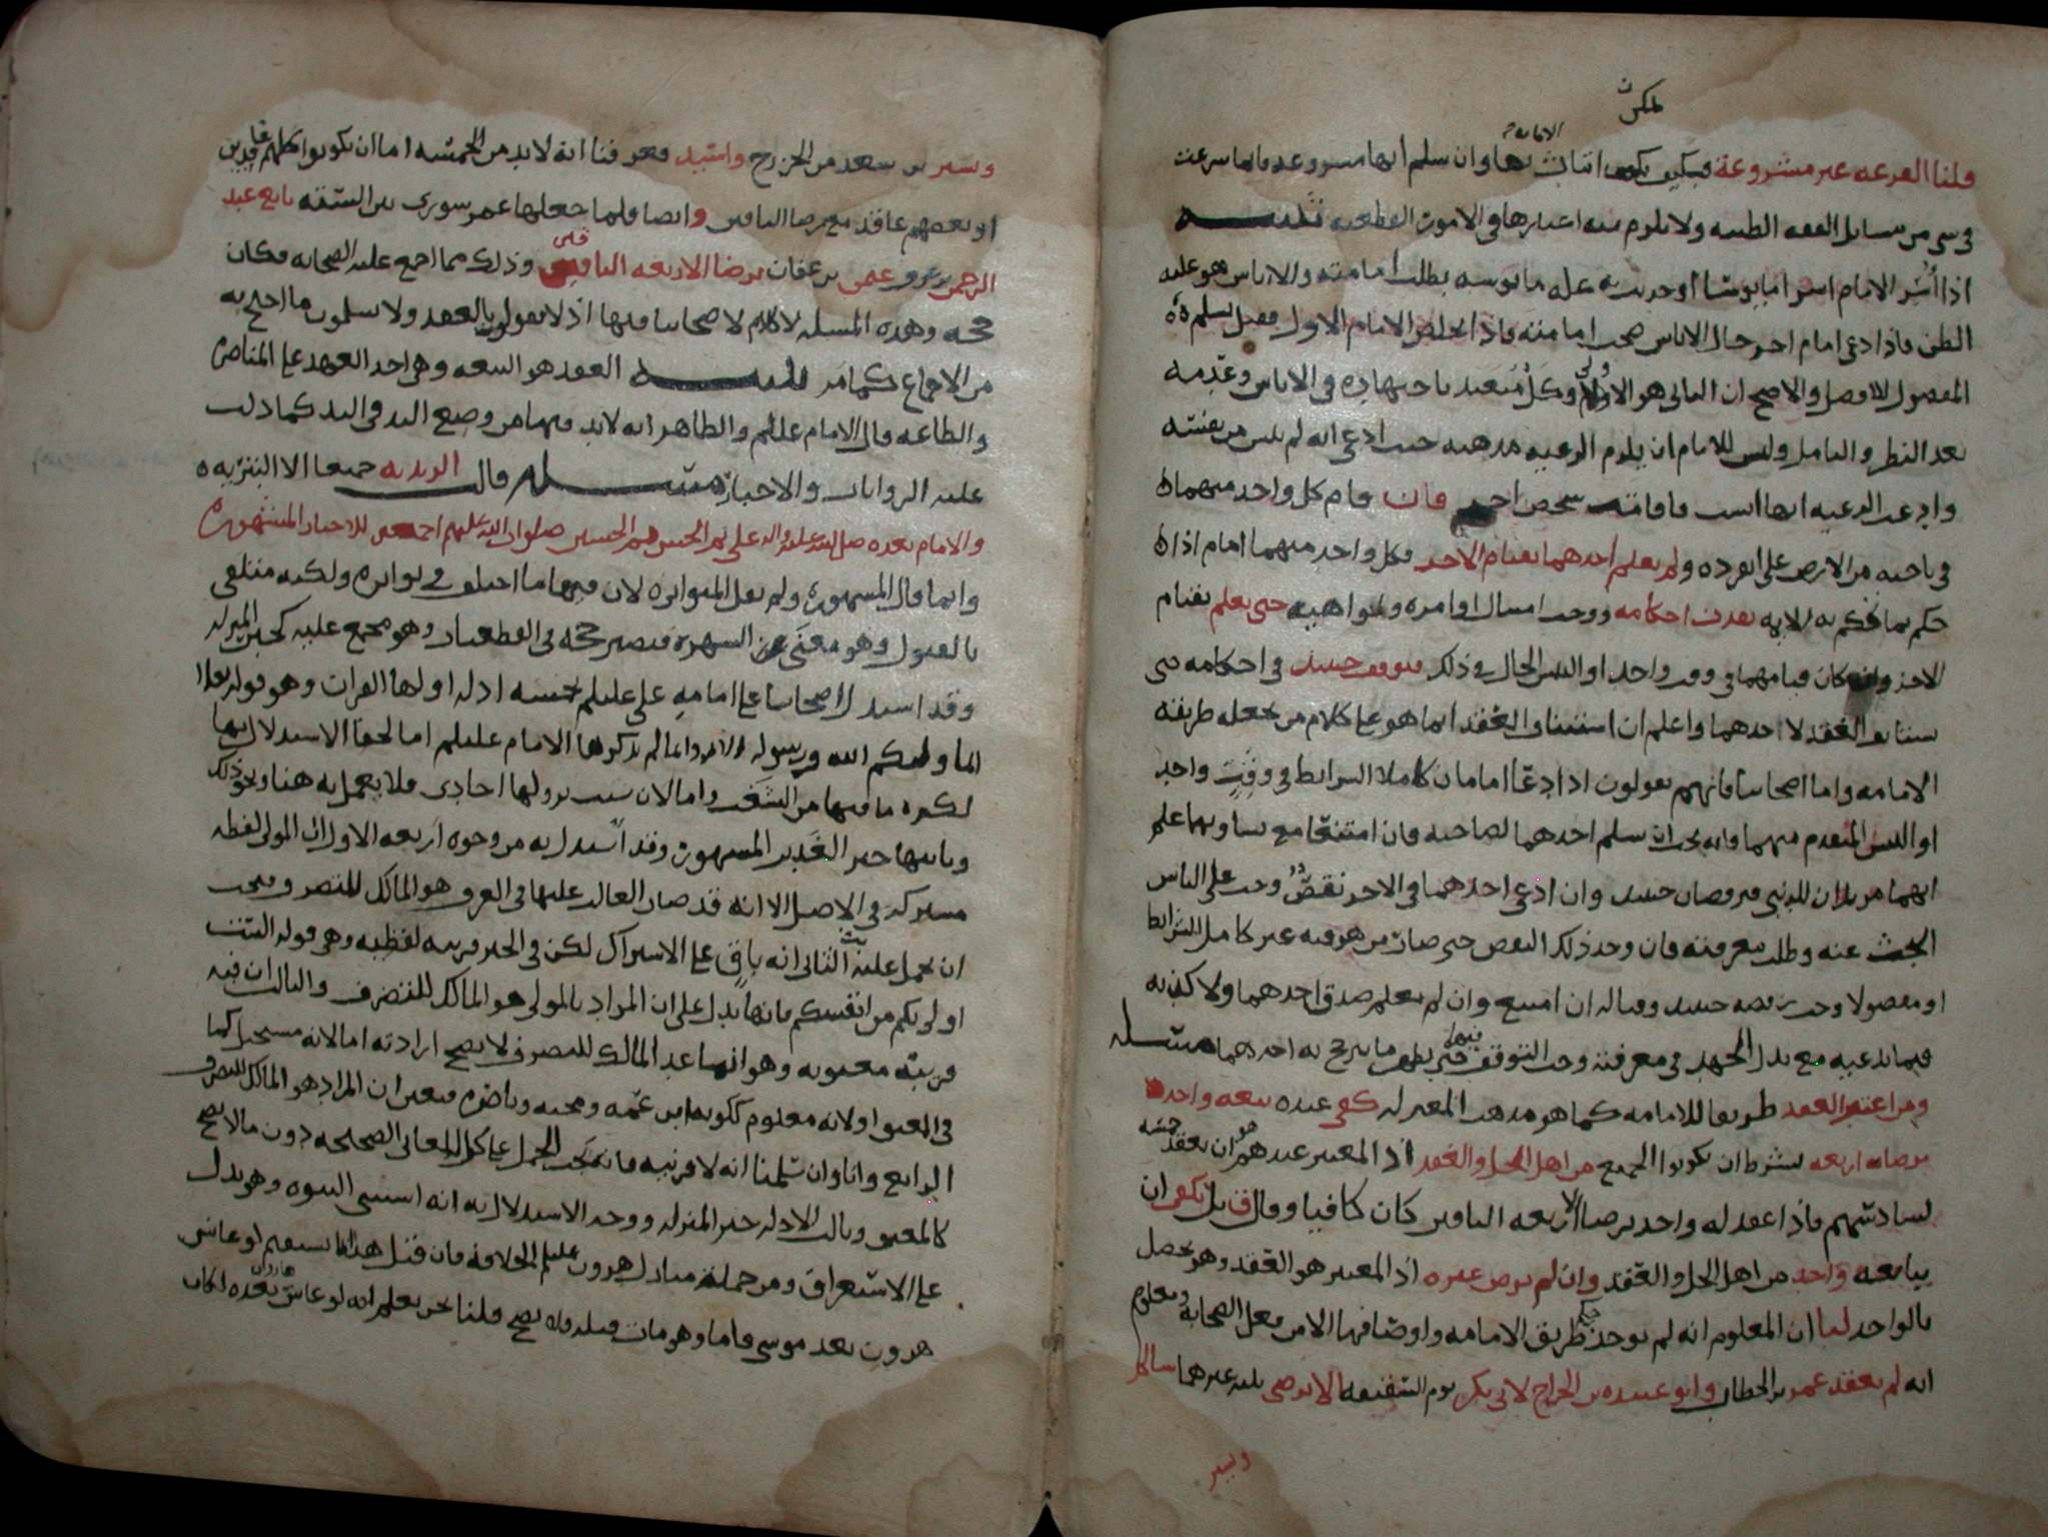 يمكن
الامامة
قلنا القرعة غير مشروعة فكيف يكون اثبات بها وان سلم انها مشروعة فانما شرعت
في شي من مسايل الفقه الظنية ولا يلزم منه اعتبارها في الامور القطعية تنبيه
اذا أُسر الامام اسرا مايوسا او حدث به علة مايوسه بطلت امامته والاياس هو غلبة
الظن فاذا دعى امام اخر حال الاياس صحت امامته فاذا تخلص الامام الاول فقيل يسلم
المفضول للافضل والاصح ان الثاني هو الاولى وكل متعبد باجتهاده في الاياس وعدمه
بعد النظر والتامل وليس للامام ان يلزم الرعية مذهبه حيث ادعى انه لم ييس من نفسه
وادعت الرعية انها ايست فاقامت شخص اخر فان قام كل واحد منهما
في ناحية من الارض على انفراده ولم يعلم احدهما بقيام الاخر فكل واحد منهما امام اذا
حكم بما يحكم به الايمه نفذت احكامه ووجب امتثال اوامره ونواهيه حتى يعلم بقيام
الاخر وان كان قيامهما في وقت واحد او التبس الحال في ذلك فتوقف حينيذ في احكامه حتى
يستانف العقد لاحدهما واعلم ان استيناف العقد انما هو على كلام من يجعله طريقة
الامامه واما اصحابنا فانهم يقولون اذا ادعا امامان كاملا الشرايط في وقت واحد
او التبس المتقدم منهما فانه يجب ان يسلم احدهما لصاحبه فان امتنعا مع تساويهما علم
انهما مريدان للدنيا فيرفضان حينيذ وان ادعى احدهما في الاخر نقص وجب على الناس
البحث عنه وطلب معرفته فان وجد ذلك النقص حتى صار من هو فيه غير كامل الشرايط
او مفضولا وجب رفضه حينيذ وقتاله ان امتنع وان لم يعلم صدق احدهما ولا كذبه
فيما يدعيه مع بذل الجهد في معرفته وجب التوقف فيهما حتى يظهر ما يرجح به احدهما مسئلة
ومن اعتبر العقد طريقا للامامه كما هو مذهب المعتزله كفى عنده بيعه واحد
برضاء اربعه بشرط ان يكونوا الجميع من اهل الحل والعقد اذ المعتبر عندهم هو ان يعقد خمسه
لسادسهم فاذا عقد له واحد برضا الاربعه الباقين كان كافيا وقال قايل يكفي ان
يبايعه واحد من اهل الحل والعقد وان لم يرض غيره اذ المعتبر هو العقد وهو يحصل
بالواحد لنا ان المعلوم انه لم يوجد حكم طريق الامامه واوصافها الا من فعل الصحابة ومعلوم
انه لم يعقد عمر بن الخطاب وابو عبيده بن الجراح لابي بكر يوم السقيفه الا برضى ثلثه غيرهما سالم
وبشير
وبشير بن سعد من الخزرج واسيد فعرفنا انه لابد من الخمسه اما ان يكونوا كلهم عاقدين
او بعضهم عاقد مع رضا الباقين وايضا فلما جعلها عمر شورى بين الستة بايع عبد
الرحمن بن عوف عثمن بن عفان برضا الاربعه الباقين وذلك مما اجمع عليه الصحابه فكان
حجه وهذه المسيله لا كلام لاصحابنا فيها اذ لا يقولون بالعقد ولا يسلمون ما احتج به
من الاجماع كما مر تنبيه العقد هو البيعه وهي اخذ العهد على المناصره
والطاعه قال الامام عليلم والظاهر انه لابد فيها من وضع اليد في اليد كما دلت
عليه الروايات والاخبار مسئله قالت الزيديه جميعا الا البتريه
والامام بعده صلى الله عليه واله علي ثم الحسن ثم الحسين صلوات الله عليهم اجمعين للاخبار المشهوره
وانما قال المشهوره ولم يقل المتواتره لان فيها ما اختلف في تواتره ولكنه متلقى
بالقبول وهو معنى الشهره فتصير حجه في القطعيات وهو مجمع عليه كخبر المنزله
وقد استدل اصحابنا على امامة علي عليلم بخمسه ادله اولها القران وهو قوله تعلا
انما وليكم الله ورسوله الايه وانما لم يذكرها الامام عليلم اما لخفا الاستدلال بها
لكثره ما فيها من الشغب واما لان سبب نزولها احادي فلا يعمل به هنا ونحو ذلك
وثانيها خبر الغدير المشهور وقد استدل به من وجوه اربعه الاول ان المولى لفظه
مشتركه في الاصل الا انه قد صار الغالب عليها في العرف هو المالك للتصرف فيجب
ان يحمل عليه الثاني انه باق على الاشتراك لكن في الخبر قرينه لفظيه وهو قوله الست
اولى بكم من انفسكم فانها تدل على ان المراد بالمولى هو المالك للتصرف والثالث ان فيه
قرينة معنويه وهو انما عدا المالك للتصرف لا يصح ارادته اما لانه مستحيل كما
في المعتق او لانه معلوم ككونه ابن عمه ومحبه وناصره فتعين ان المراد هو المالك للتصرف
الرابع وانا وان سلمنا انه لا قرينه فانه يجب الحمل على كل المعاني الصحيحه دون ما لا يصح
كالمعتق وثالث الادله خبر المنزله ووجه الاستدلال به انه استثنى النبوه وهو يدل
على الاستغراق ومن جملة منازل هرون عليلم الخلافة فان قيل هذا انما يستقيم لو عاش
هرون بعد موسى فاما وهو مات قبله فلا يصح قلنا نحن نعلم انه لو عاش هارون بعده لكان